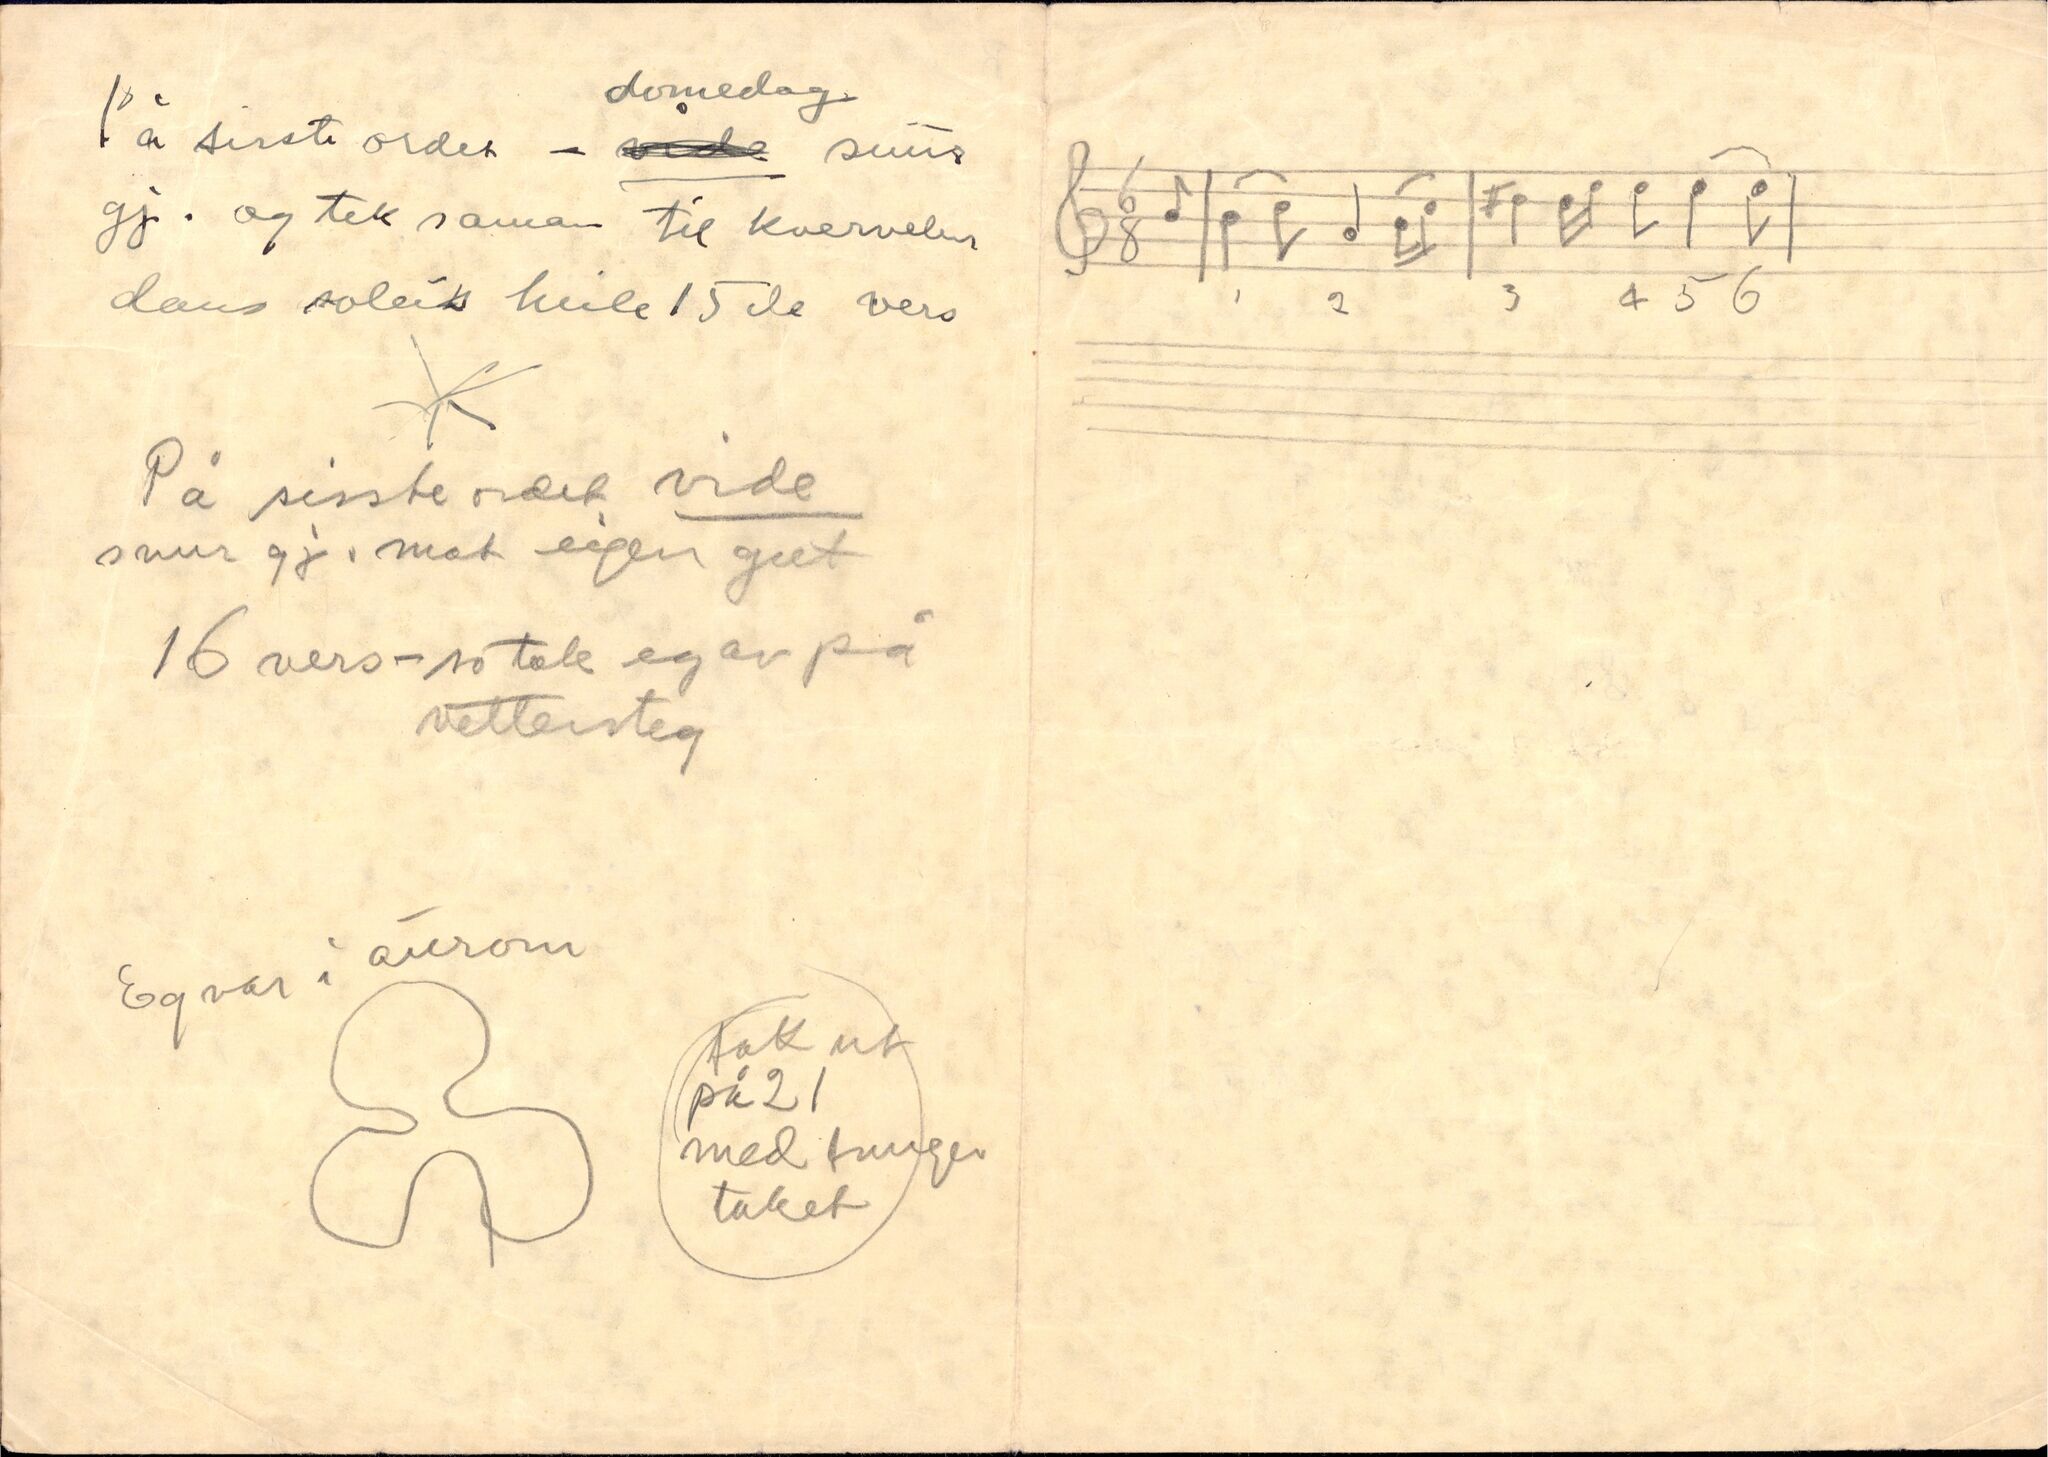 domedag
På sisste ordet – vide snur
gj. og tek saman til kvervelur
dans soleis heile 15de vers
På sisste ordet vide
snur gj. mot eigen gut
16 vers – so tok eg av på
vettersteg
Eg var i aurom
tok ut
på 21
med tunge
taket
6
8
1 2 3 4 5 6